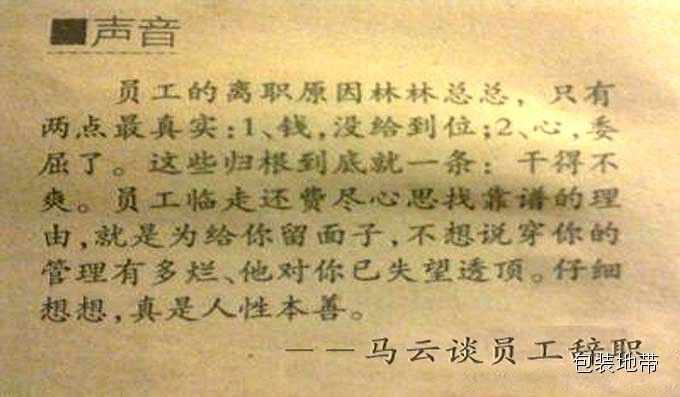 ■声音
员工的离职原因林林总总，只有
两点最真实:1、钱,没给到位;2、心,委
屈了。这些归根到底就一条：干得不
爽。员工临走还费尽心思找靠谱的理
由,就是为给你留面子,不想说穿你的
管理有多烂、他对你已失望透顶。仔细
想想,真是人性本善。
－－马云谈员工辞职
包装地带